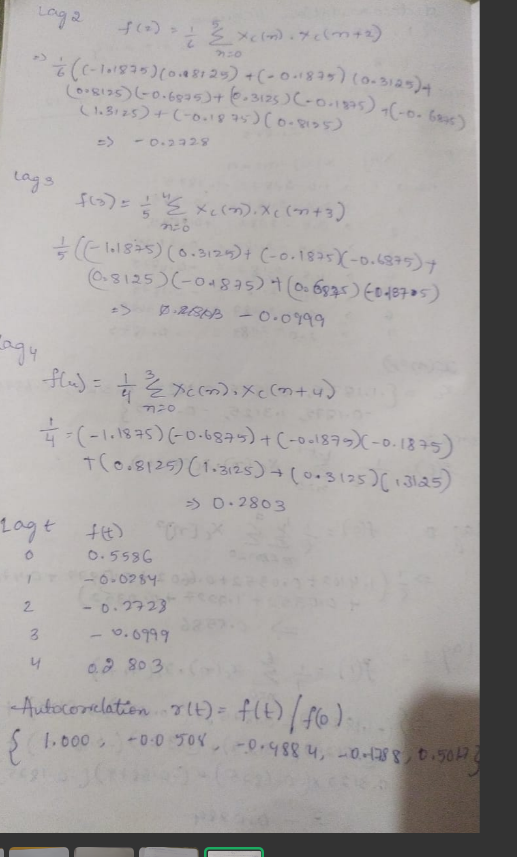 Lag 2
f(2) = 1/6 5∑n=0 xc(n) . xc(n+2)
=> 1/6 ((-1.1875)(0.8125) + (-0.1875)(0.3125) +
(0.8125)(-0.6875) + (0.3125)(-0.1875) + (-0.6875)
(1.3125) + (-0.1875)(0.8125)
=> -0.2728
Lag 3
f(3) = 1/5 4∑n=0 xc(n). xc(n+3)
1/5 ((-1.1875)(0.3125) + (-0.1875)(-0.6875) +
(0.8125)(-0.1875) + (0.6875)
=> -0.0999
Lag 4
f(4) = 1/4 3∑n=0 xc(n). xc(n+4)
1/4 = (-1.1875)(-0.6875) + (-0.1875)(-0.1875)
+ (0.8125)(1.3125) + (0.3125)(1.3125)
=> 0.2803
Lag t f(t)
0 0.5586
1 -0.0284
2 -0.2728
3 -0.0999
4 0.2803
Autocorrelation r(t) = f(t) / f(0)
{ 1.000, -0.0508, -0.4884, -0.1788, 0.5017 }